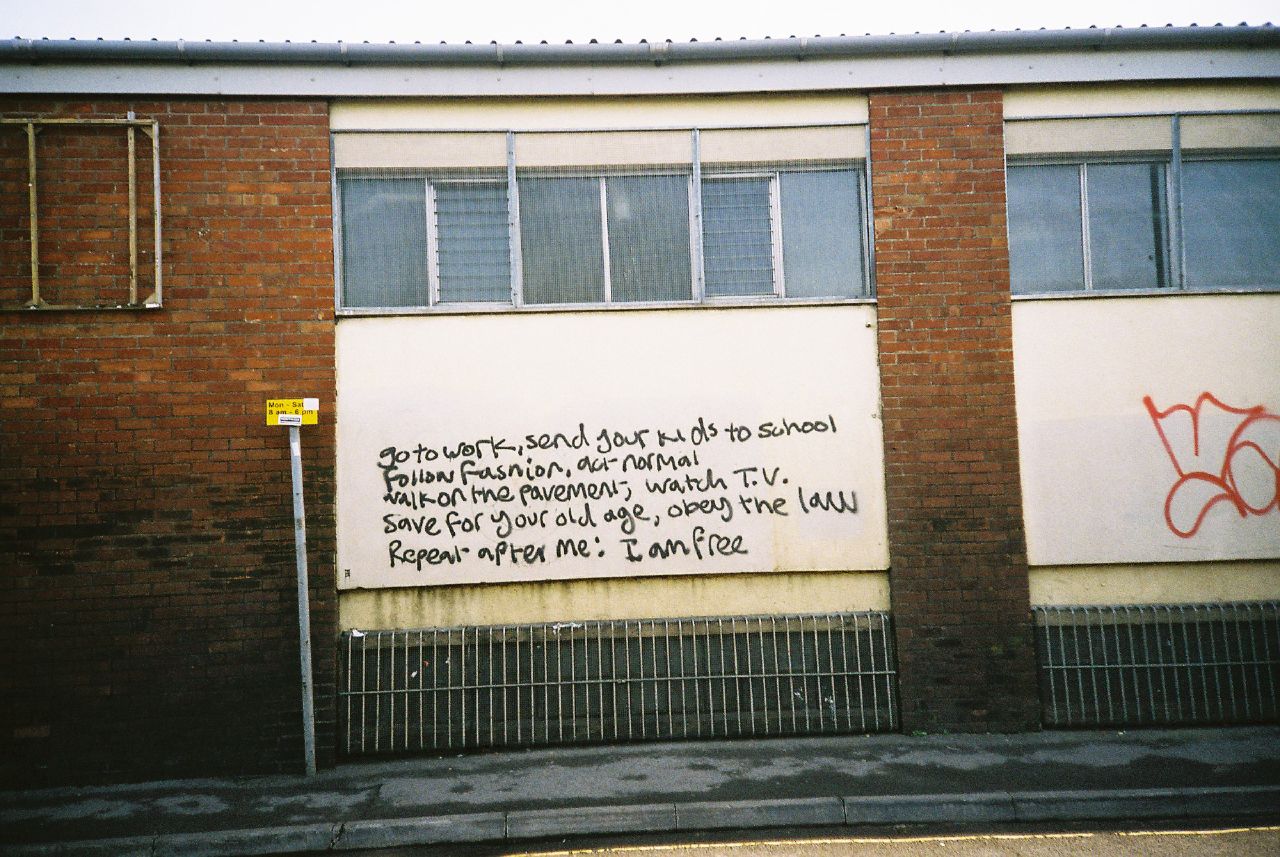 Mon - Sat
8 am - 6 pm
go to work, send your kids to school
Follow fashion, act normal
walk on the pavement, watch T.V.
save for your old age, obey the law
Repeat after me: I am free